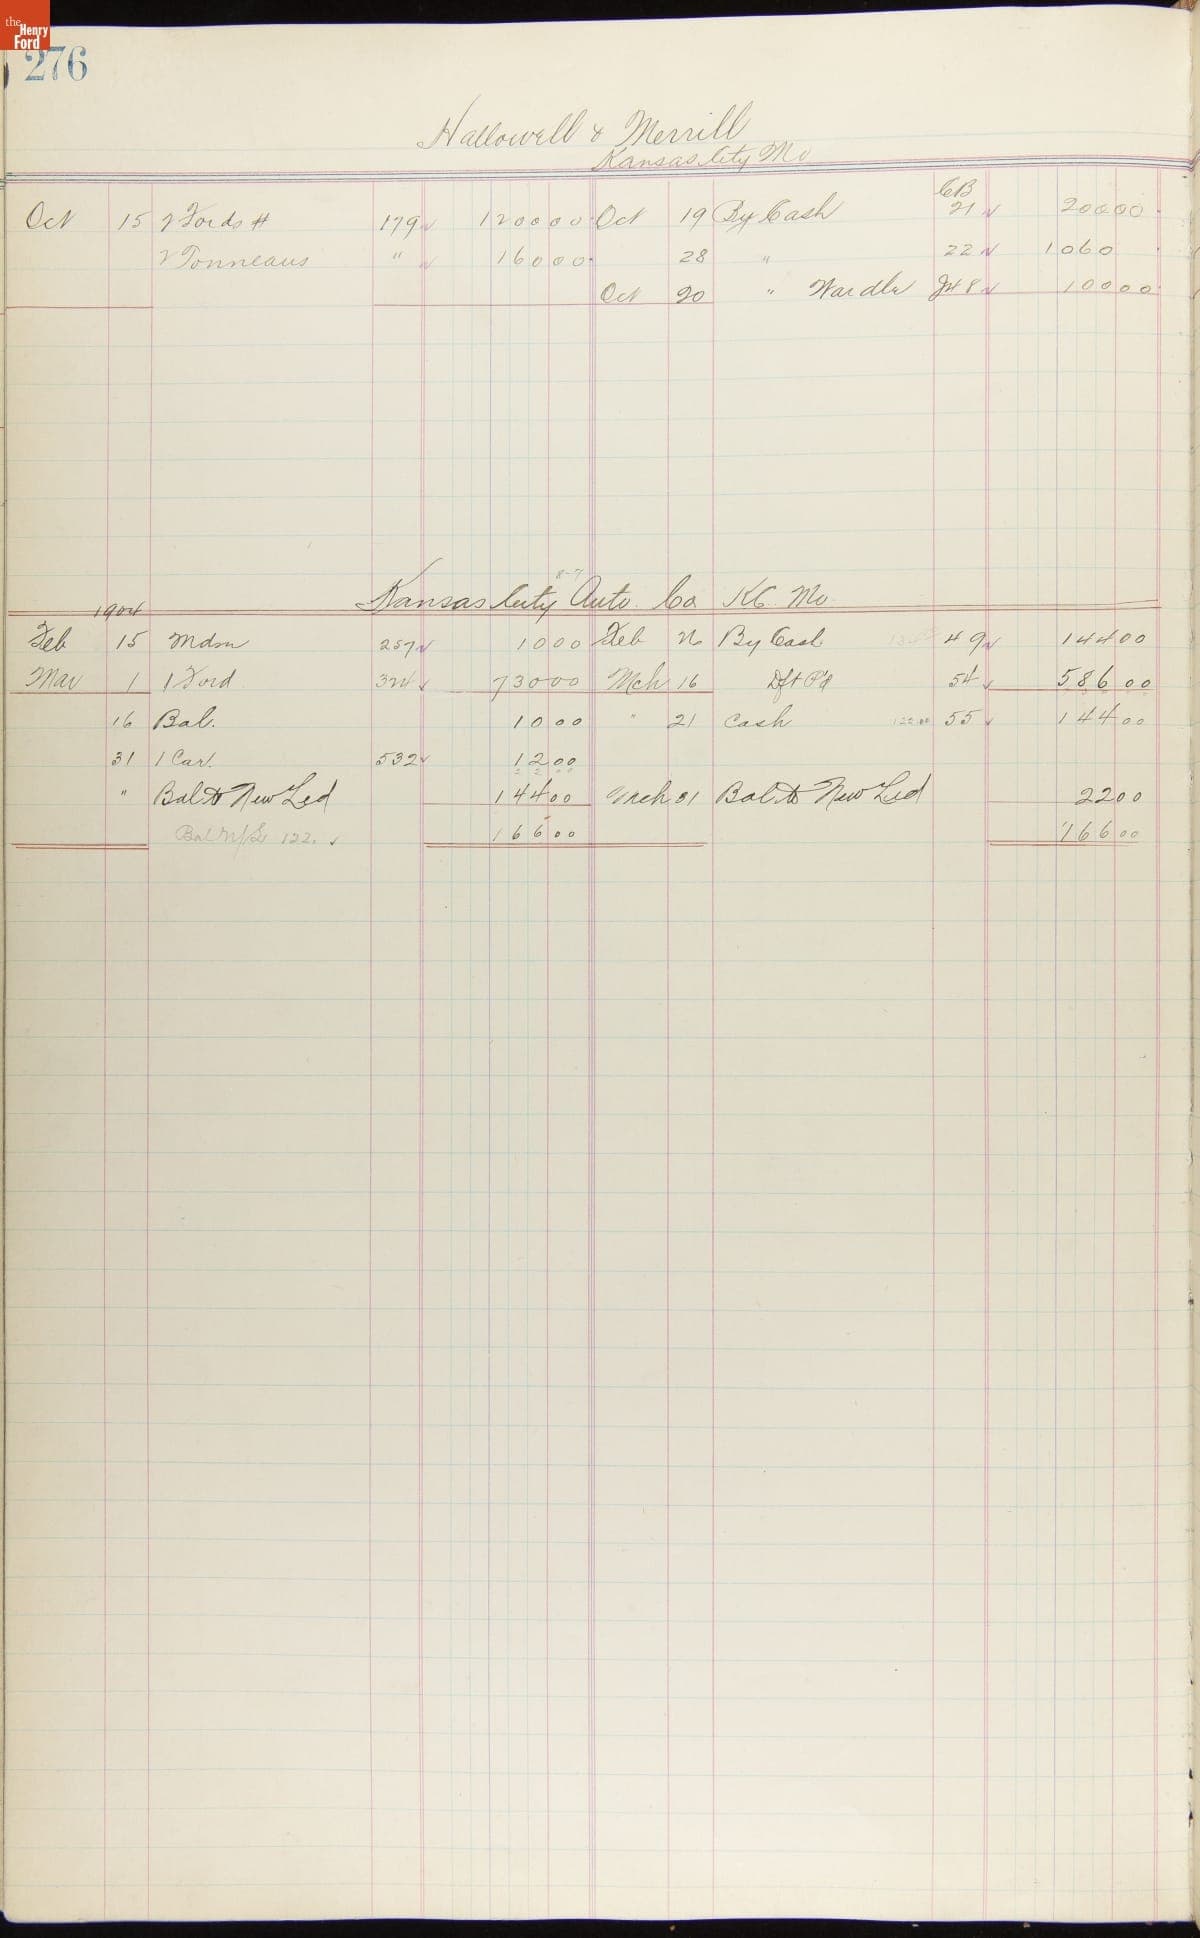 the Henry Ford
276
Hallowell & Merrill
Kansas City Mo
CB
Oct 15 2 Fords # 179 1200 00 Oct 19 By Cash 21 200 00
2 Tonneaus " 160 00 28 " 22 1060
Oct 20 " Wardle J48 100 00
8-7
Kansas City Auto. Co KC Mo
1904
Feb 15 Mdse 257 10 00 Feb By Cash 49 144 00
Mar 1 1 Ford 324 730 00 Mch 16 Dft Pd 54 586 00
16 Bal. 10 00 " 21 Cash 122.00 55 144 00
31 1 Car. 532 12 00
22 00
" Bal to New Led 144 00 Mch 31 Bal to New Led 22 00
Bal N/L 122. 166 00 166 00